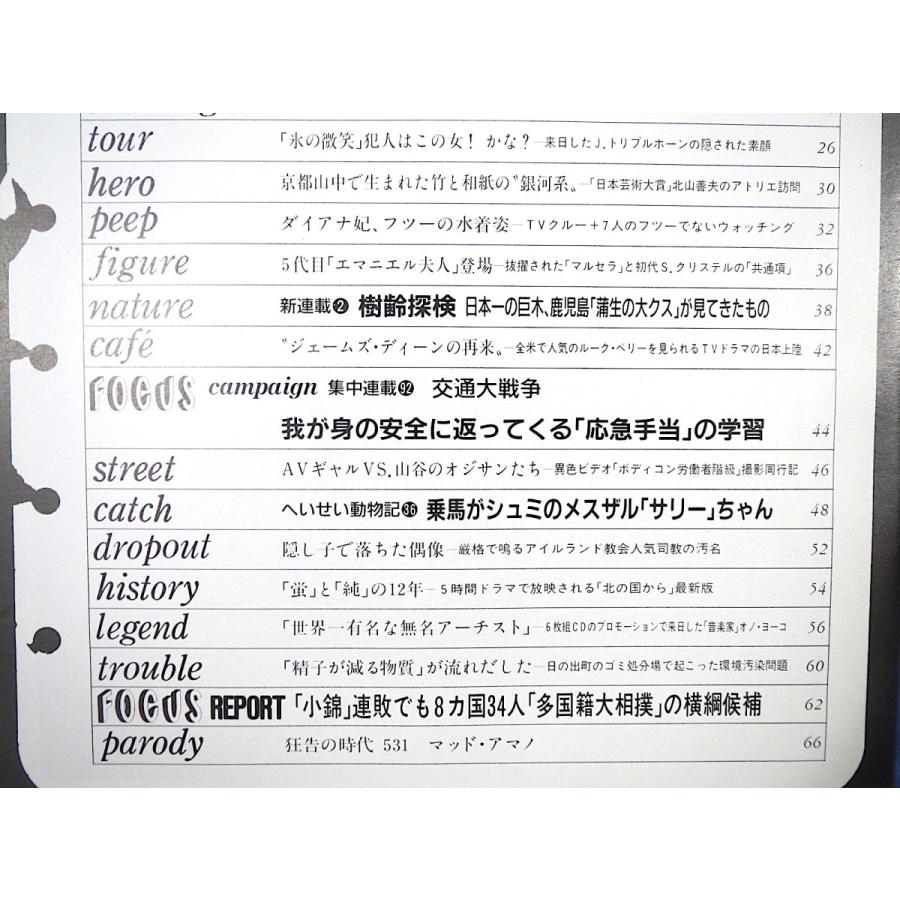 tour 「氷の微笑」犯人はこの女! かな?―来日したJ.トリプルホーンの隠された素顔 26
hero 京都山中で生まれた竹と和紙の〝銀河系〟―「日本芸術大賞」北山善夫のアトリエ訪問 30
peep ダイアナ妃、フツーの水着姿―TVクルー+7人のフツーでないウォッチング 32
figure 5代目「エマニエル夫人」登場―抜擢された「マルセラ」と初代S.クリステルの「共通項」 36
nature 新連載❷ 樹齢探検 日本一の巨木、鹿児島「蒲生の大クス」が見てきたもの 38
café 〝ジェームズ・ディーンの再来〟―全米で人気のルーク・ペリーを見られるTVドラマの日本上陸 42
FOCUS campaign 集中連載92 交通大戦争
我が身の安全に返ってくる「応急手当」の学習 44
street AVギャルVS.山谷のオジサンたち―異色ビデオ「ボディコン労働者階級」撮影同行記 46
catch へいせい動物記36 乗馬がシュミのメスザル「サリー」ちゃん 48
dropout 隠し子で落ちた偶像―厳格で鳴るアイルランド教会人気司教の汚名 52
history 「蛍」と「純」の12年―5時間ドラマで放映される「北の国から」最新版 54
legend 「世界一有名な無名アーチスト」―6枚組CDのプロモーションで来日した「音楽家」オノ・ヨーコ 56
trouble 「精子が減る物質」が流れだした―日の出町のゴミ処分場で起こった環境汚染問題 60
FOCUS REPORT 「小錦」連敗でも8カ国34人「多国籍大相撲」の横綱候補 62
parody 狂告の時代 531 マッド・アマノ 66